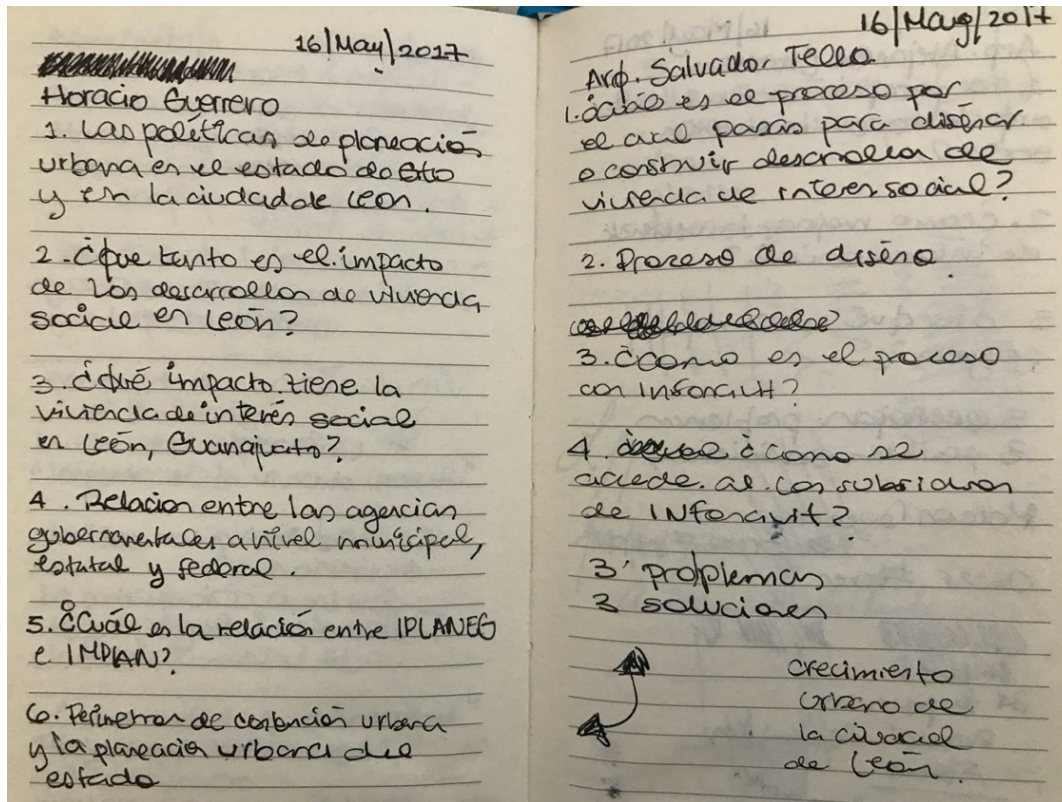 16/May/2017
Horacio Guerrero
1. Las políticas de planeación
urbana en el estado de Gto
y en la ciudad de León.
2. ¿Que tanto es el impacto
de los desarrollos de vivienda
social en León?
3. ¿Qué impacto tiene la
vivienda de interés social
en León, Guanajuato?
4. Relacion entre las agencias
gubernamentales a nivel municipal,
estatal y federal.
5. ¿Cuál es la relación entre IPLANEG
e IMPLAN?
6. Perimetros de contención urbana
y la planeación urbana del
estado
16/May/2017
Arq. Salvador Tello
1. ¿Cuál es el proceso por
el cual pasas para diseñar
o construir desarrollos de
vivienda de interes social?
2. Proceso de diseño.
3. ¿como es el proceso
con Infonavit?
4. ¿como se
accede a los subsidios
de INfonavit?
3 problemas
3 soluciones
crecimiento
urbano de
la ciudad
de León.